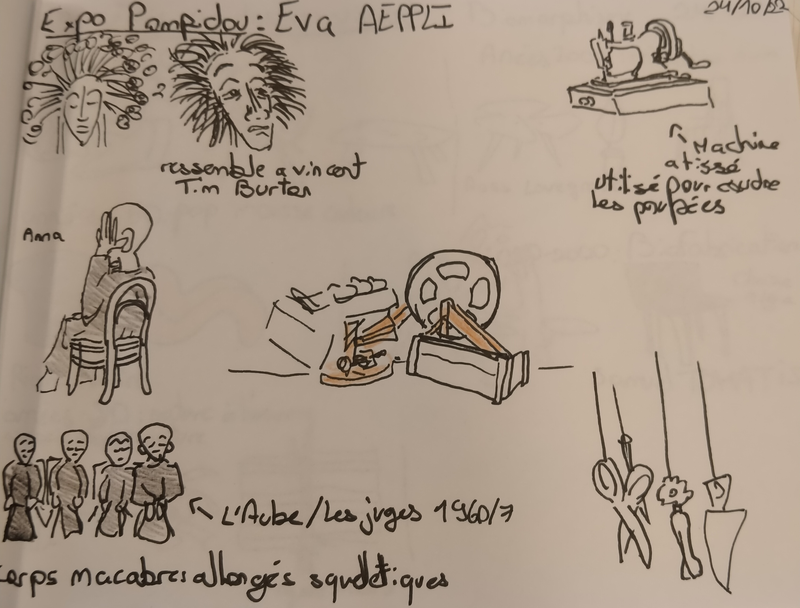 Expo Pompidou: Eva AEPPLI
24/10/22
ressemble a vincent
Tim Burton
Machine
a tissé
utilisé pour coudre
les poupées
Anna
L'Aube/Les juges 1960/7
Corps macabres allongés squelétiques